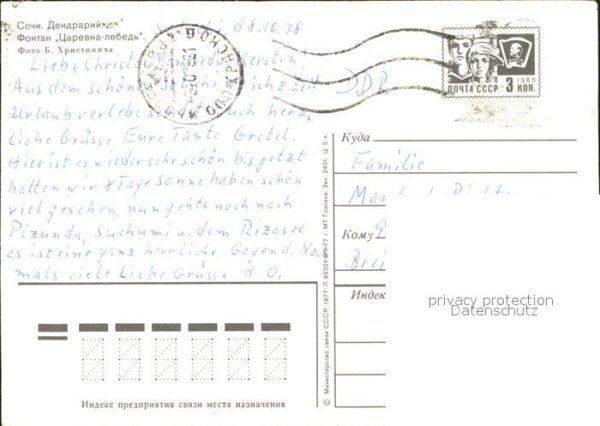 Сочи. Дендрарий
Фонтан „Царевна-лебедь“
Фото Б. Христинича
d 8.10.78
Liebe Christa Manfred u. Kerstin!
Aus dem schönen Sotschi wo ich z. Zeit
Urlaub verlebe sendet Euch herz.
liche Grüsse Eure Tante Gretel.
Hier ist es wieder sehr schön bis jetzt
hatten wir 8 Tage Sonne haben schön
viel gesehen, nun gehts noch nach
Pizunda, Suchumi u. dem Rizasee
es ist eine ganz herrliche Gegend. Noch
mals viele Liebe Grüsse d. O,
DDR
ПОЧТА СССР 3 КОП.
1966
Куда
Familie
Кому
Индекс
privacy protection
Datenschutz
Индекс предприятия связи места назначения
© Министерство связи СССР, 1977 МТ Гознака. Зак. 2401. Ц. 5 к.